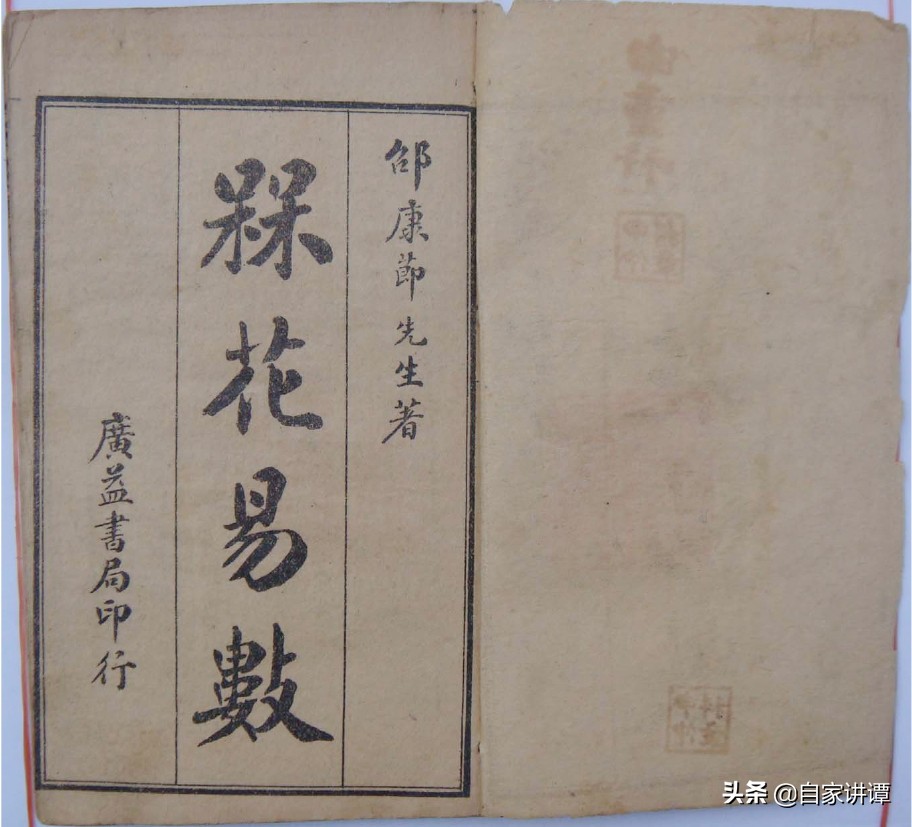 邵康節先生著
槑花易數
廣益書局印行
头条 @自家讲谭